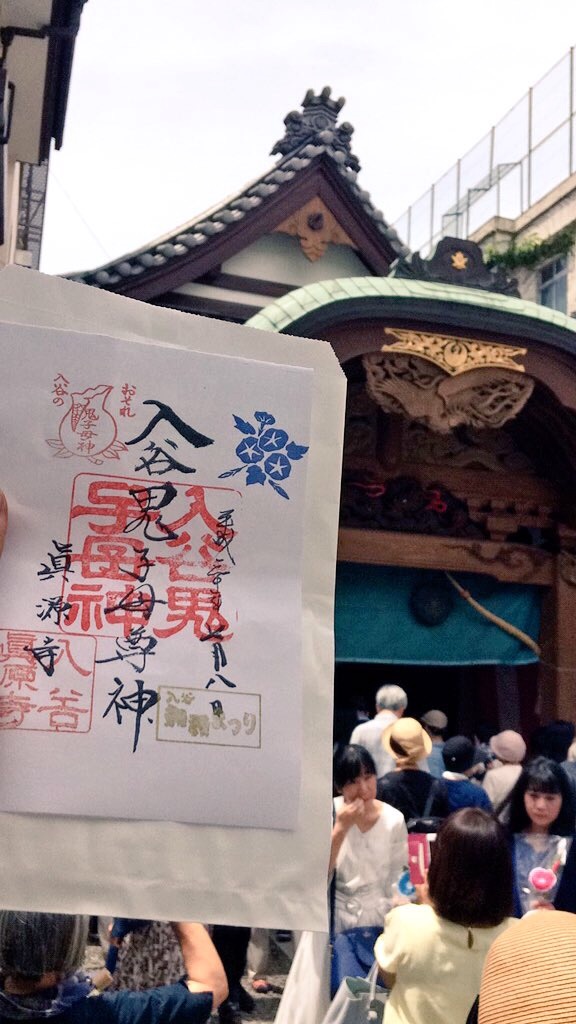 平成三十年七月八日
入谷鬼子母尊神
眞源寺
おそれ
入谷の
鬼子母神
入谷鬼
子母神
入谷
眞源寺
入谷
朝顔まつり